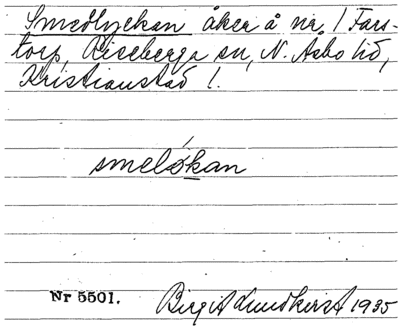 Smedlyckan åker å nr. 1 Fars-
torp, Riseberga sn, N. Åsbo hd,
Kristianstad l.
smelókan
Nr 5501.
Birgit Lundkvist 1935